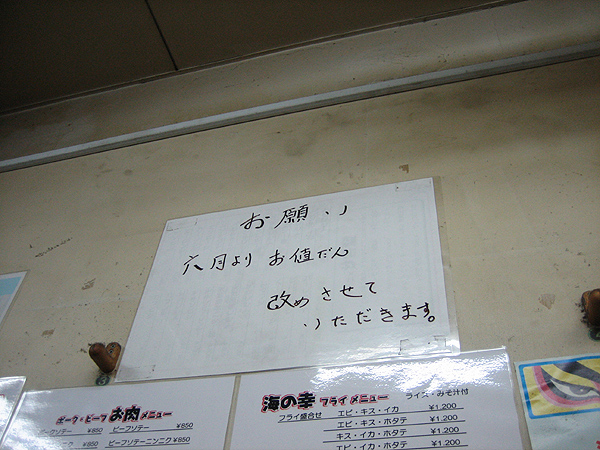 お願い
六月より お値だん
改めさせて
いただきます。
ポーク・ビーフ お肉 メニュー
¥850 ビーフソテー ¥850
¥850 ビーフソテーニンニク ¥850
海の幸 フライメニュー ライス・みそ汁付
フライ盛合せ エビ・キス・イカ ¥1.200
エビ・キス・ホタテ ¥1.200
キス・イカ・ホタテ ¥1.200
エビ・イカ・ホタテ ¥1.200